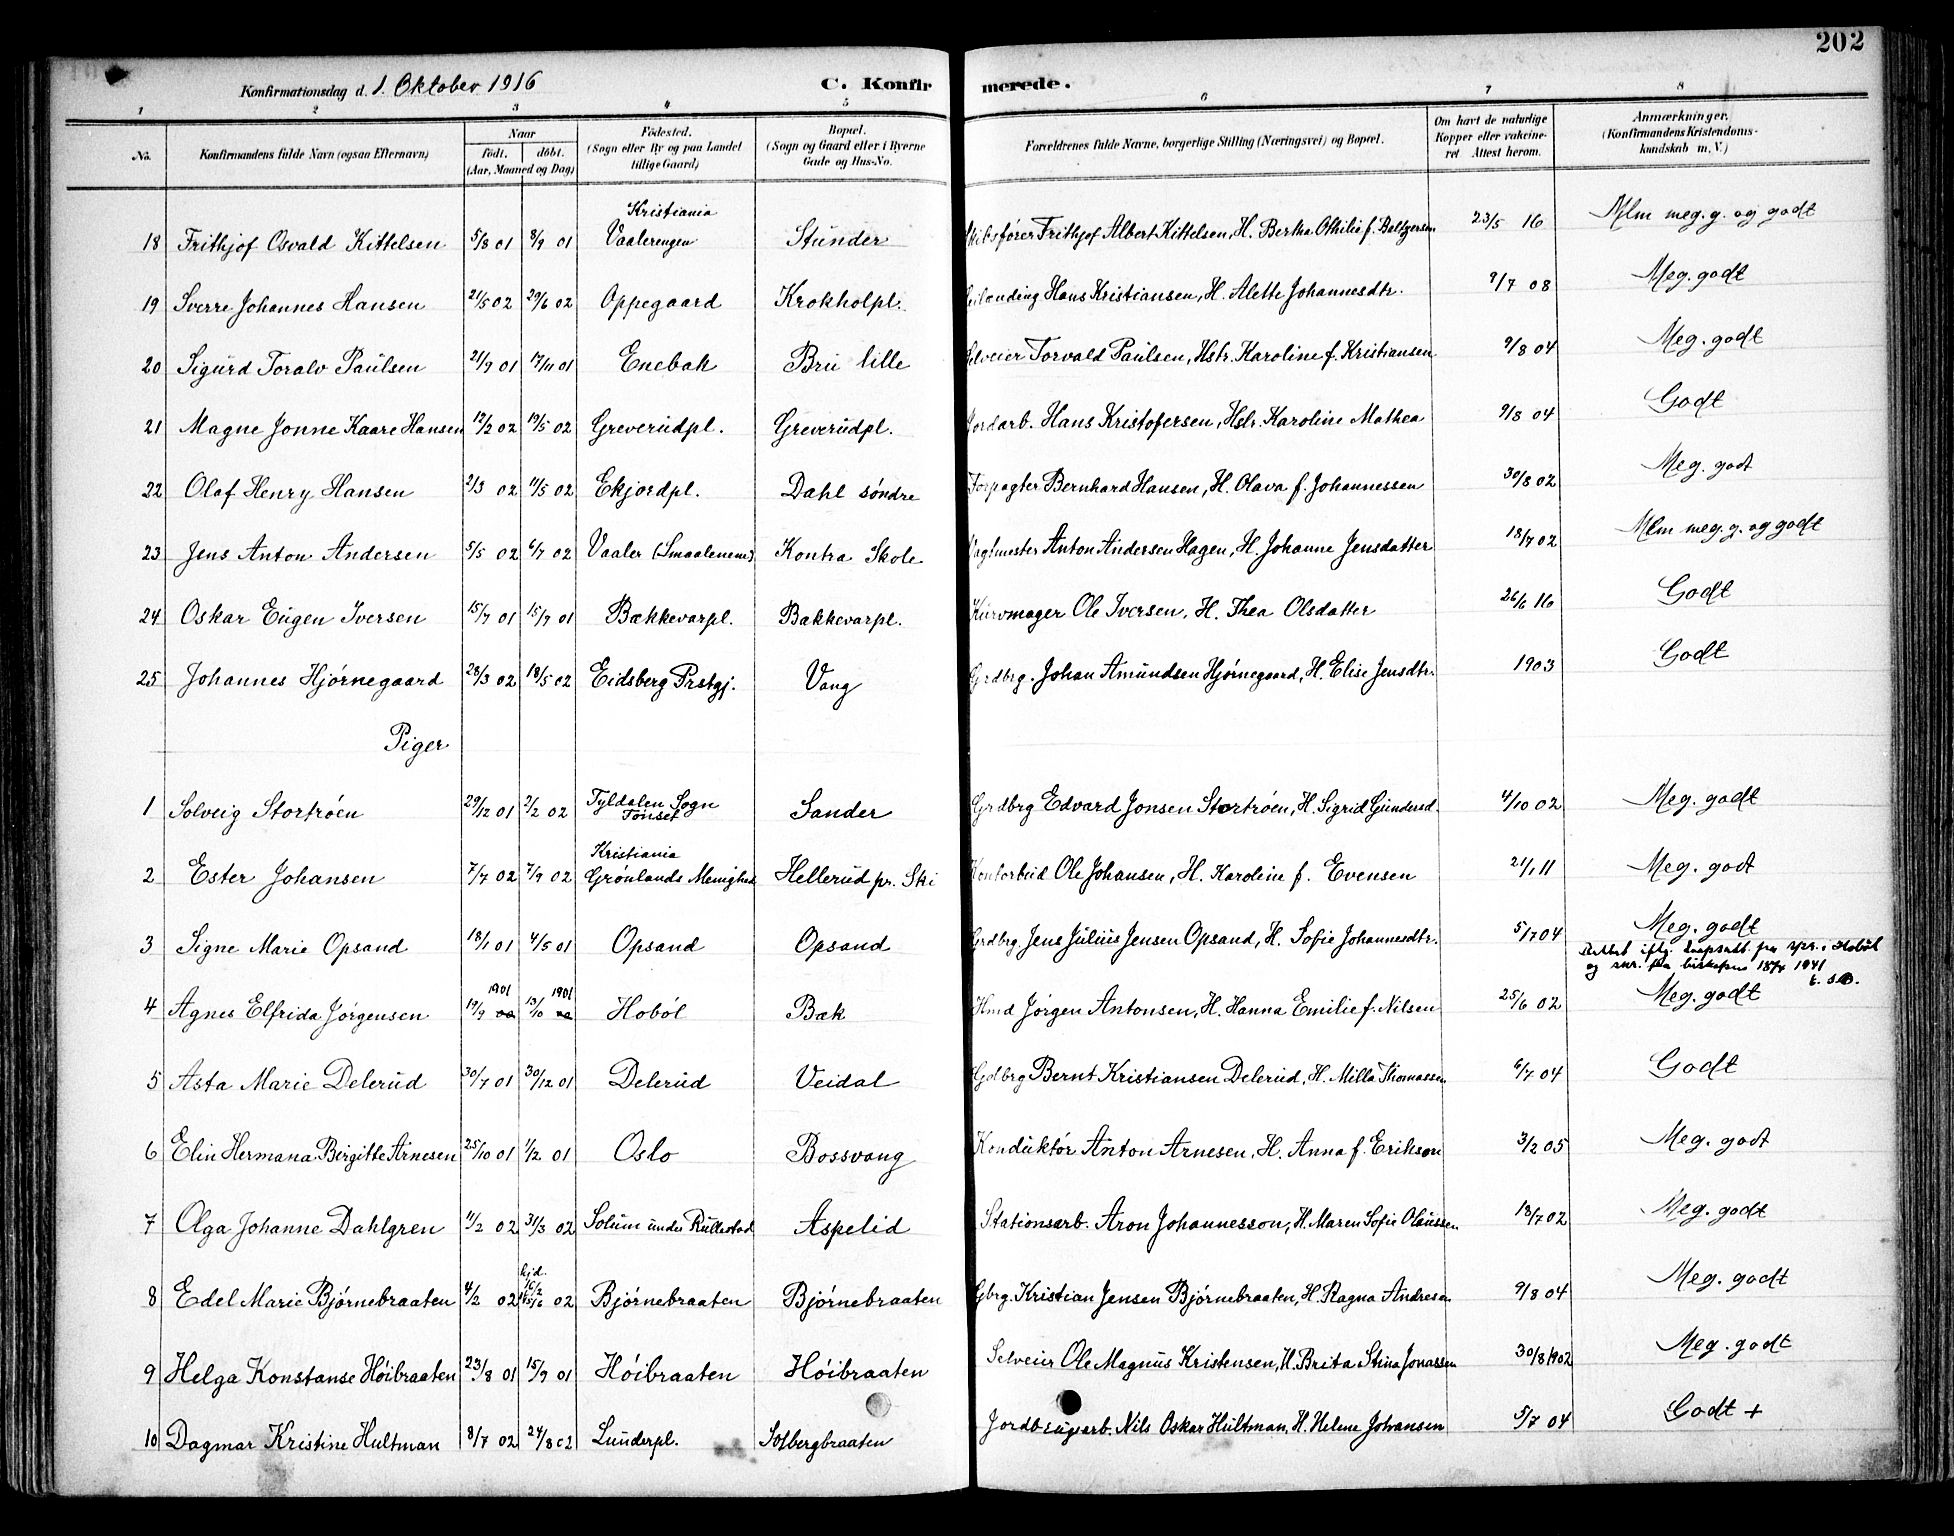 202
Konfirmationsdag d. 1. Oktober 1916 C. Konfirmerede.
1 2 3 4 5 6 7 8
No. Konfirmandens fulde Navn (ogsaa Efternavn) Naar født. døbt. (Aar, Maaned og Dag) Fødested. (Sogn eller By og paa Landet tillige Gaard) Bopæl. (Sogn og Gaard eller i Byerne Gade og Hus-No. Forældrenes fulde Navne, borgerlige Stilling (Næringsvei) og Bopæl. Om havt de naturlige Kopper eller vakcineret Attest herom. Anmærkninger. (Konfirmandens Kristendomskundskab m. V.)
18 Frithjof Osvald Kittelsen 5/8 01 8/9 01 Kristiania Vaalerengen Stunder Frithjof Albert Kittelsen, H. Bertha Othilie f. Baltzersen 23/5 16 Mlm meg. g. og godt
19 Sverre Johannes Hansen 21/5 02 29/6 02 Oppegaard Krokholpl. Hans Kristiansen, H. Alette Johannesdtr. 9/7 08 Meg. godt
20 Sigurd Toralv Paulsen 21/9 01 17/11 01 Enebak Bru lille Selveier Torvald Paulsen, Hstr. Karoline f. Kristiansen 9/8 04 Meg. godt
21 Magne Jonne Kaare Hansen 12/2 02 19/5 02 Greverudpl. Greverudpl. Jordarb. Hans Kristofersen, Hstr. Karoline Mathea 9/8 04 Godt
22 Olaf Henry Hansen 2/3 02 11/5 02 Ekjordpl. Dahl søndre Forpagter Bernhard Hansen, H. Olava f. Johannessen 30/8 02 Meg. godt
23 Jens Anton Andersen 5/5 02 6/7 02 Vaaler (Smaalenene) Kontra Skole Vagtmester Anton Andersen Hagen, H. Johanne Jensdatter 18/7 02 Mlm meg. g. og godt
24 Oskar Eugen Iversen 15/7 01 15/9 01 Bækkevarpl. Bakkevarpl. Kurvmager Ole Iversen, H. Thea Olsdatter 26/6 16 Godt
25 Johannes Hjørnegaard 28/3 02 18/5 02 Eidsberg Prstgj. Vang Grdbrg. Johan Amundsen Hjørnegaard, H. Elise Jensdtr. 1903 Godt
Piger
1 Solveig Stortrøen 29/12 01 2/2 02 Tyldalen Sogn Tønset Sander Grdbrg Edvard Jonsen Stortrøen, H. Sigrid Gundersd. 4/10 02 Meg. godt
2 Ester Johansen 7/7 02 7/9 02 Kristiania Grønlands Menighed Hellerud pr. Ski Kontorbud Ole Johansen, H. Karoline f. Evensen 21/1 11 Meg. godt
3 Signe Marie Opsand 18/1 01 4/5 01 Opsand Opsand Grdbrg. Jens Julius Jensen Opsand, H. Sofie Johannesdtr. 5/7 04 Meg. godt
Rettet iflg. daapsatt. fra spr. i Hobøl
og skr. fra biskopen 18/4 1941
4 Agnes Elfrida Jørgensen 19/9 1901 13/10 1901 Hobøl Bæk Hmd Jørgen Antonsen, H. Hanna Emilie f. Nilsen 25/6 02 Meg. godt
5 Asta Marie Delerud 30/7 01 30/12 01 Delerud Veidal Gdbrg Bernt Kristiansen Delerud, H. Milla Thomassen 6/7 04 Godt
6 Elin Hermana Birgitte Arnesen 25/10 01 1/2 01 Oslo Bossvang Konduktør Anton Arnesen, H. Anna f. Erikson 3/2 05 Meg. godt
7 Olga Johanne Dahlgren 11/2 02 31/3 02 Solum under Rullestad Aspelid Stationsarb. Aron Johannesson, H. Maren Sofie Olaussen 18/7 02 Meg. godt
8 Edel Marie Bjørnebraaten 4/2 02 hjd. 16/2 15/6 02 Bjørnebraaten Bjørnebraaten Gbrg. Kristian Jensen Bjørnebraaten, H. Ragna Andresen 9/8 04 Meg. godt
9 Helga Konstanse Høibraaten 23/8 01 15/9 01 Høibraaten Høibraaten Selveier Ole Magnus Kristensen, H. Brita Stina Jonassen 30/8 1902 Meg. godt
10 Dagmar Kristine Hultman 8/7 02 24/8 02 Lunderpl. Solbergbraaten Jordbrugsarb. Nils Oskar Hultman, H. Helene Johansen 5/7 04 Godt +